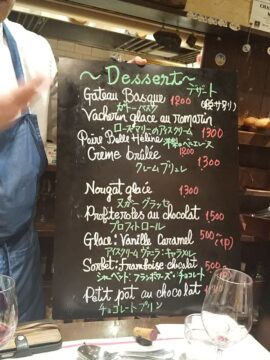 ~Dessert~
デザート
Gâteau Basque 1200
ガトーバスク
Vacherin glacé au romarin
ローズマリーのアイスクリーム 1300
Poire Belle Hélène
Crème brûlée 1300
クレームブリュレ
Nougat glacé 1300
ヌガーグラッセ
Profiteroles au chocolat 1500
プロフィトロール
Glace: Vanille Caramel 500~
アイスクリーム ヴァニラ・キャラメル (1P)
Sorbet: framboise chocolat 500~
シャーベット: フランボワーズ・チョコレート
Petit pot au chocolat
チョコレートプリン